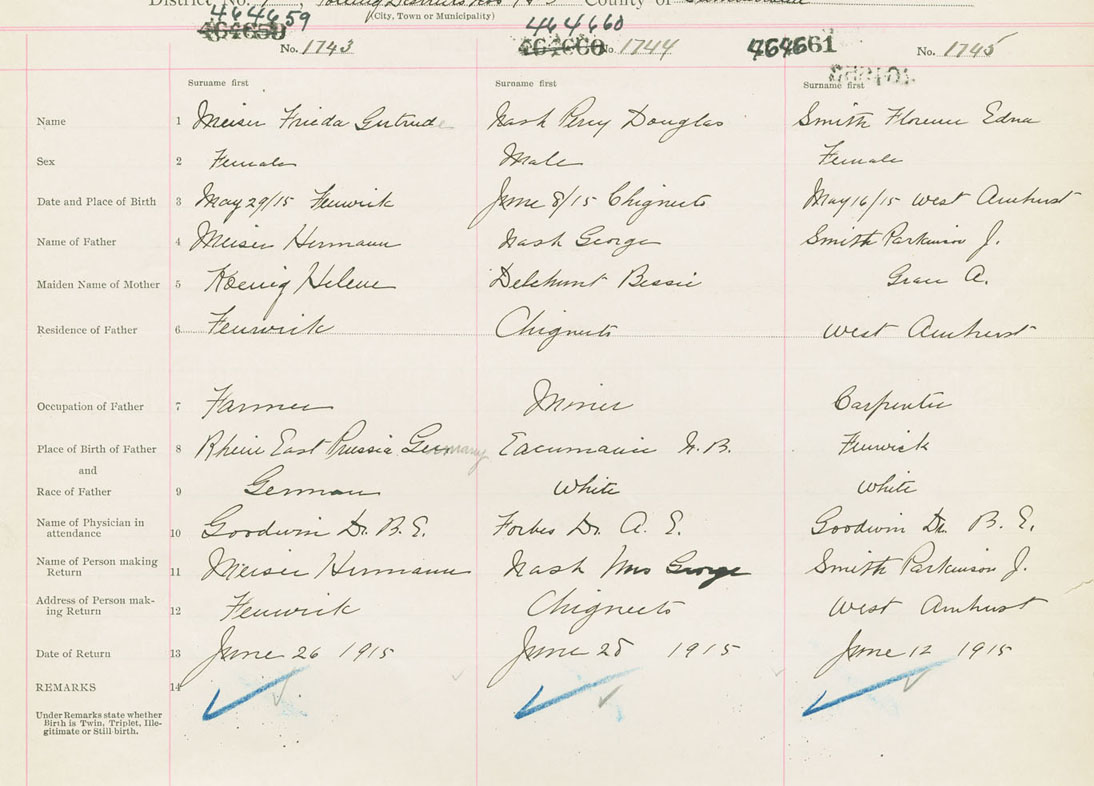 District No. 1, Polling Districts Nos 1 & 5 County of Cumberland
(City, Town or Municipality)
464659 464660
464659 464660 464661
No. 1743 No. 1744 No. 1745
Surname first Surname first Surname first
Name 1 Meiser Frieda Gertrude Nash Percy Douglas Smith Florence Edna
Sex 2 Female Male Female
Date and Place of Birth 3 May 29/15 Fenwick June 8/15 Chignecto May 16/15 West Amherst
Name of Father 4 Meiser Hermann Nash George Smith Parkinson J.
Maiden Name of Mother 5 Koenig Helene Delehunt Bessie Grace A.
Residence of Father 6 Fenwick Chignecto West Amherst
Occupation of Father 7 Farmer Miner Carpenter
Place of Birth of Father 8 Rhein East Prussia Germany N.B. Fenwick
and
Race of Father 9 German White White
Name of Physician in
attendance 10 Goodwin Dr. B. E. Forbes Dr. A. E. Goodwin Dr. B. E.
Name of Person making
Return 11 Meiser Hermann Nash Mrs George Smith Parkinson J.
Address of Person mak-
ing Return 12 Fenwick Chignecto West Amherst
Date of Return 13 June 26 1915 June 28 1915 June 12 1915
REMARKS 14
Under Remarks state whether
Birth is Twin, Triplet, Ille-
gitimate or Still birth.